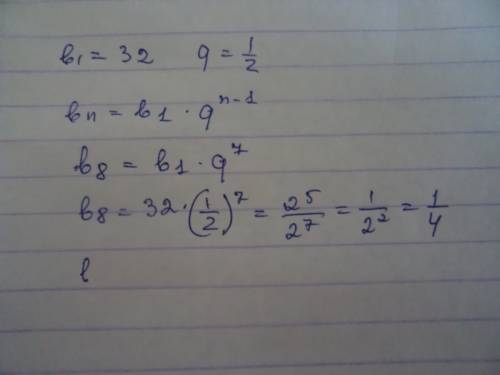 в₁ = 32 q = 1/2
вn = в1 · q^(n-1)
в8 = в1 · q^7
в8 = 32 · (1/2)^7 = 2^5/2^7 = 1/2^2 = 1/4